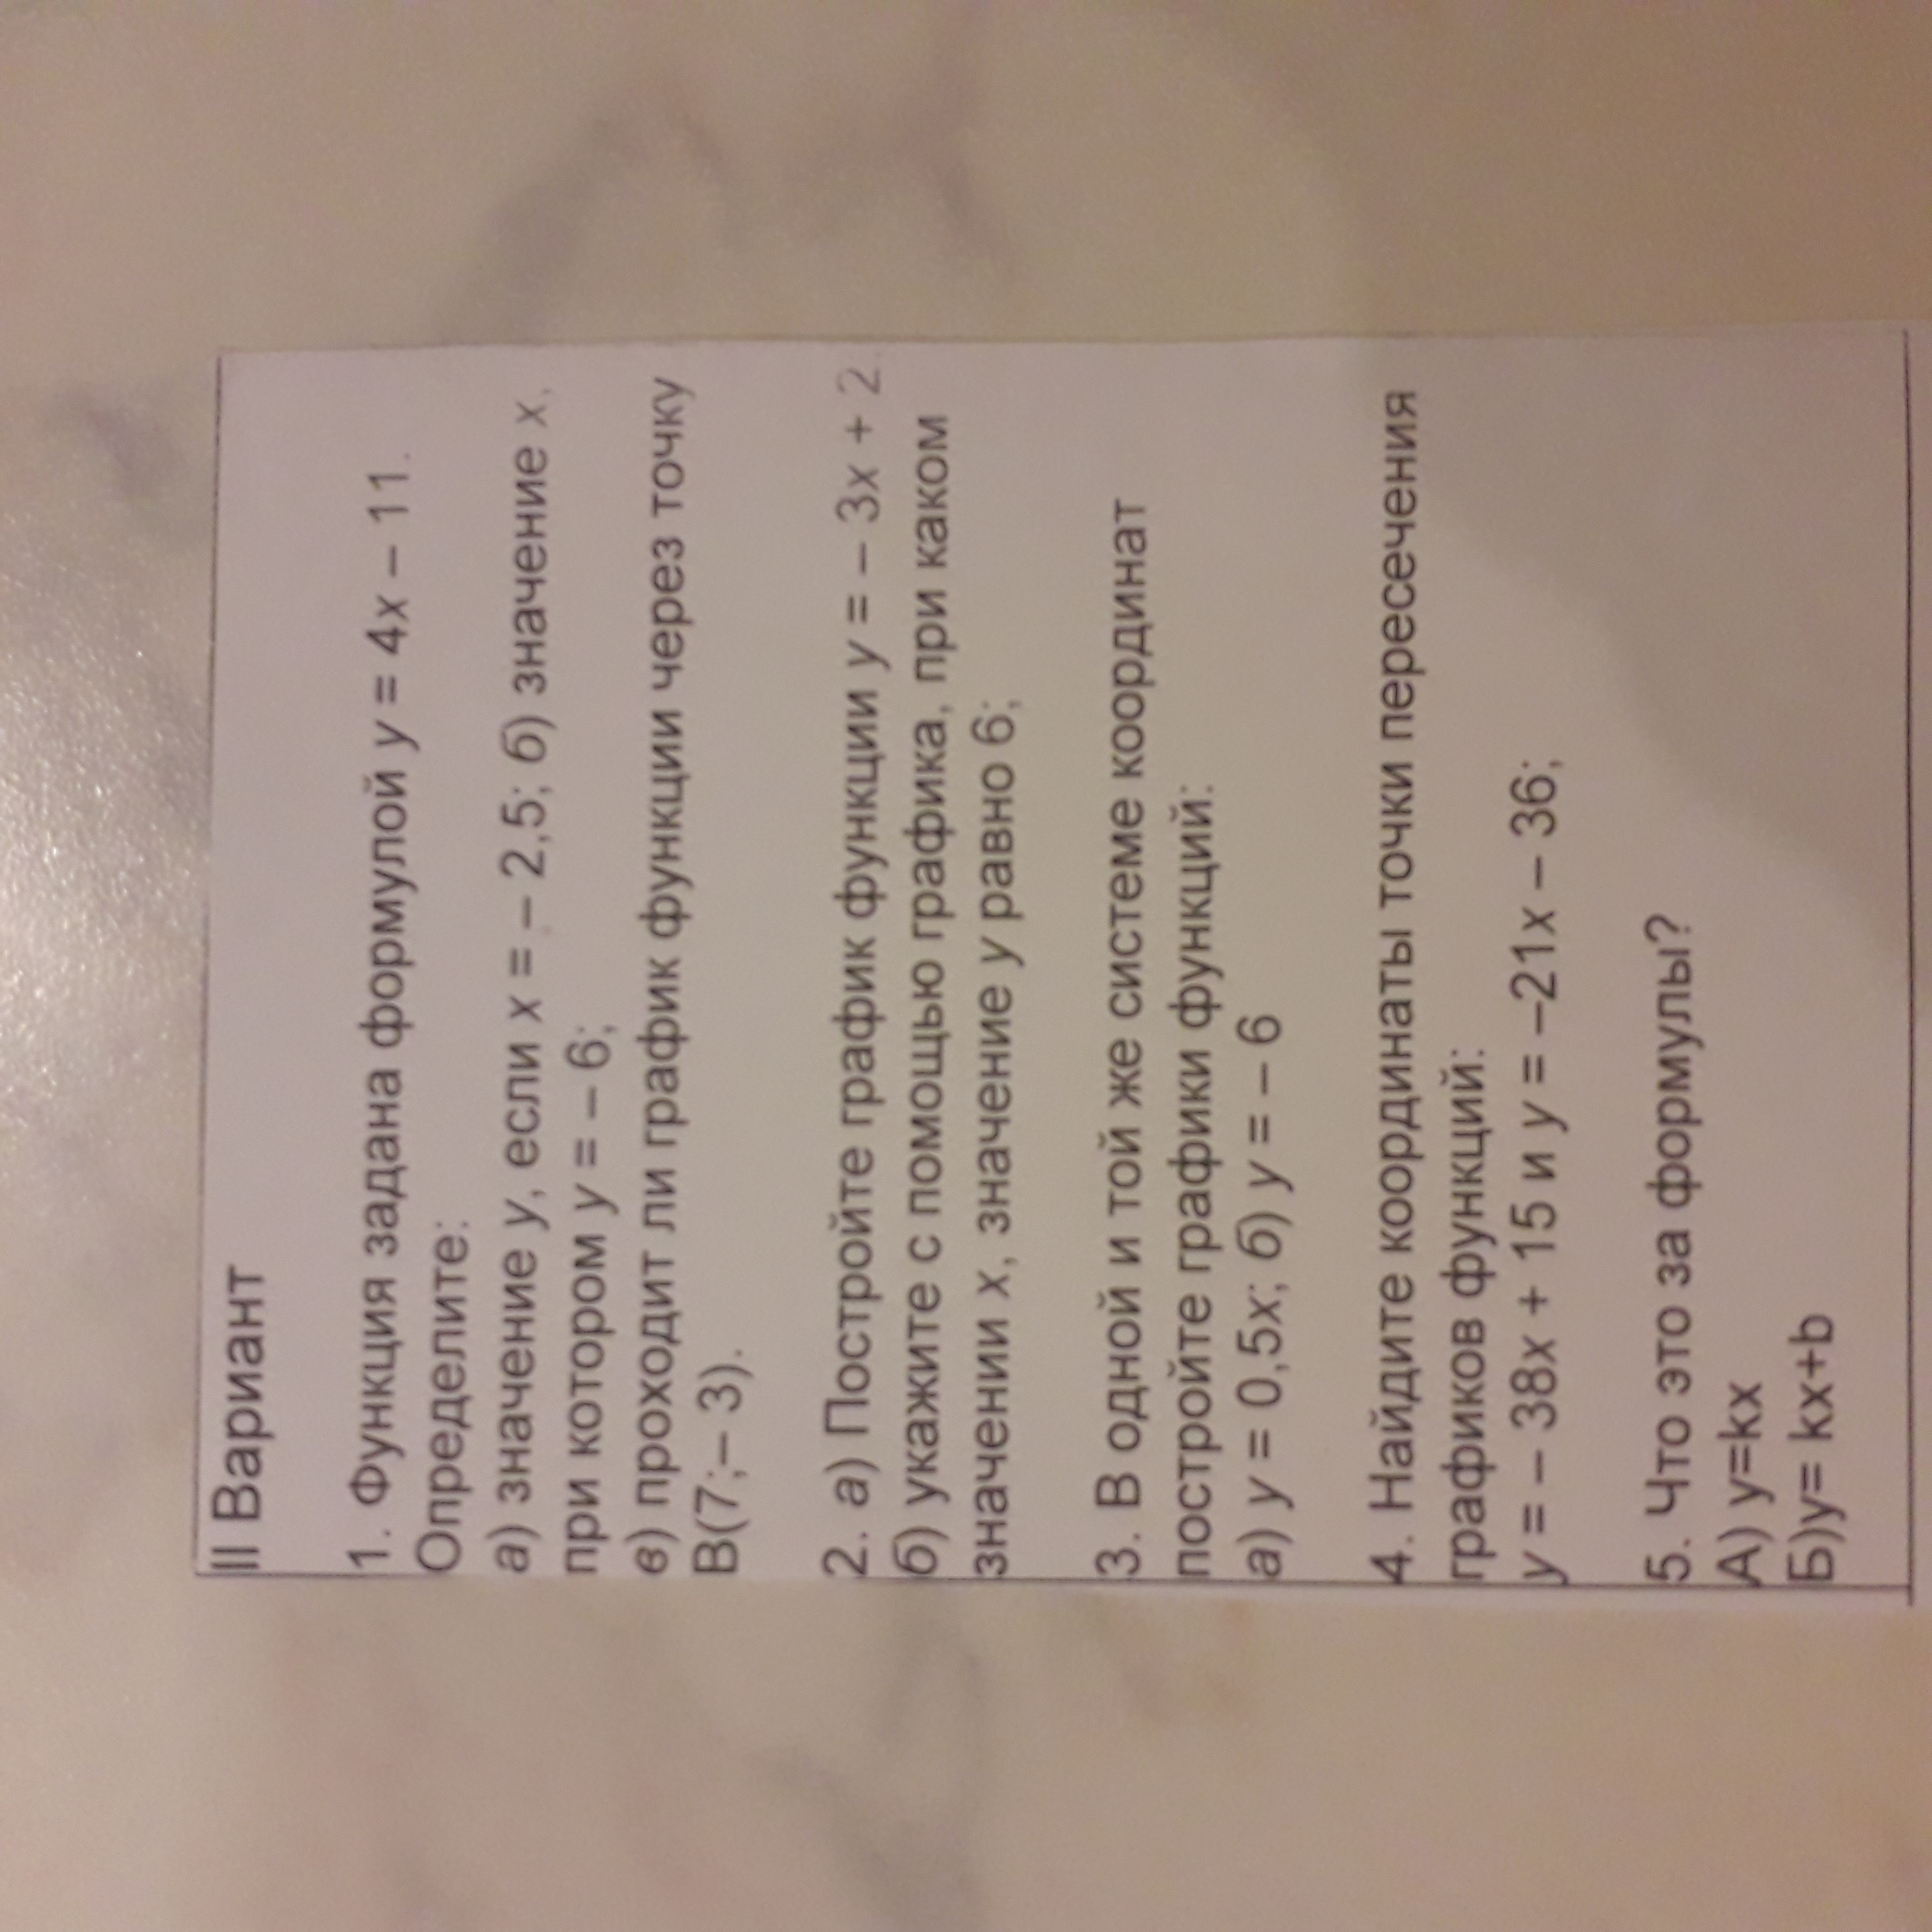 II Вариант
1. Функция задана формулой y = 4x – 11.
Определите:
а) значение y, если x = – 2,5; б) значение x,
при котором y = – 6;
в) проходит ли график функции через точку
В(7;– 3).
2. а) Постройте график функции y = – 3x + 2
б) укажите с помощью графика, при каком
значении x, значение y равно 6;
3. В одной и той же системе координат
постройте графики функций:
а) y = 0,5x; б) y = – 6
4. Найдите координаты точки пересечения
графиков функций:
y = – 38x + 15 и y = –21x – 36;
5. Что это за формулы?
А) y=kx
Б)y= kx+b